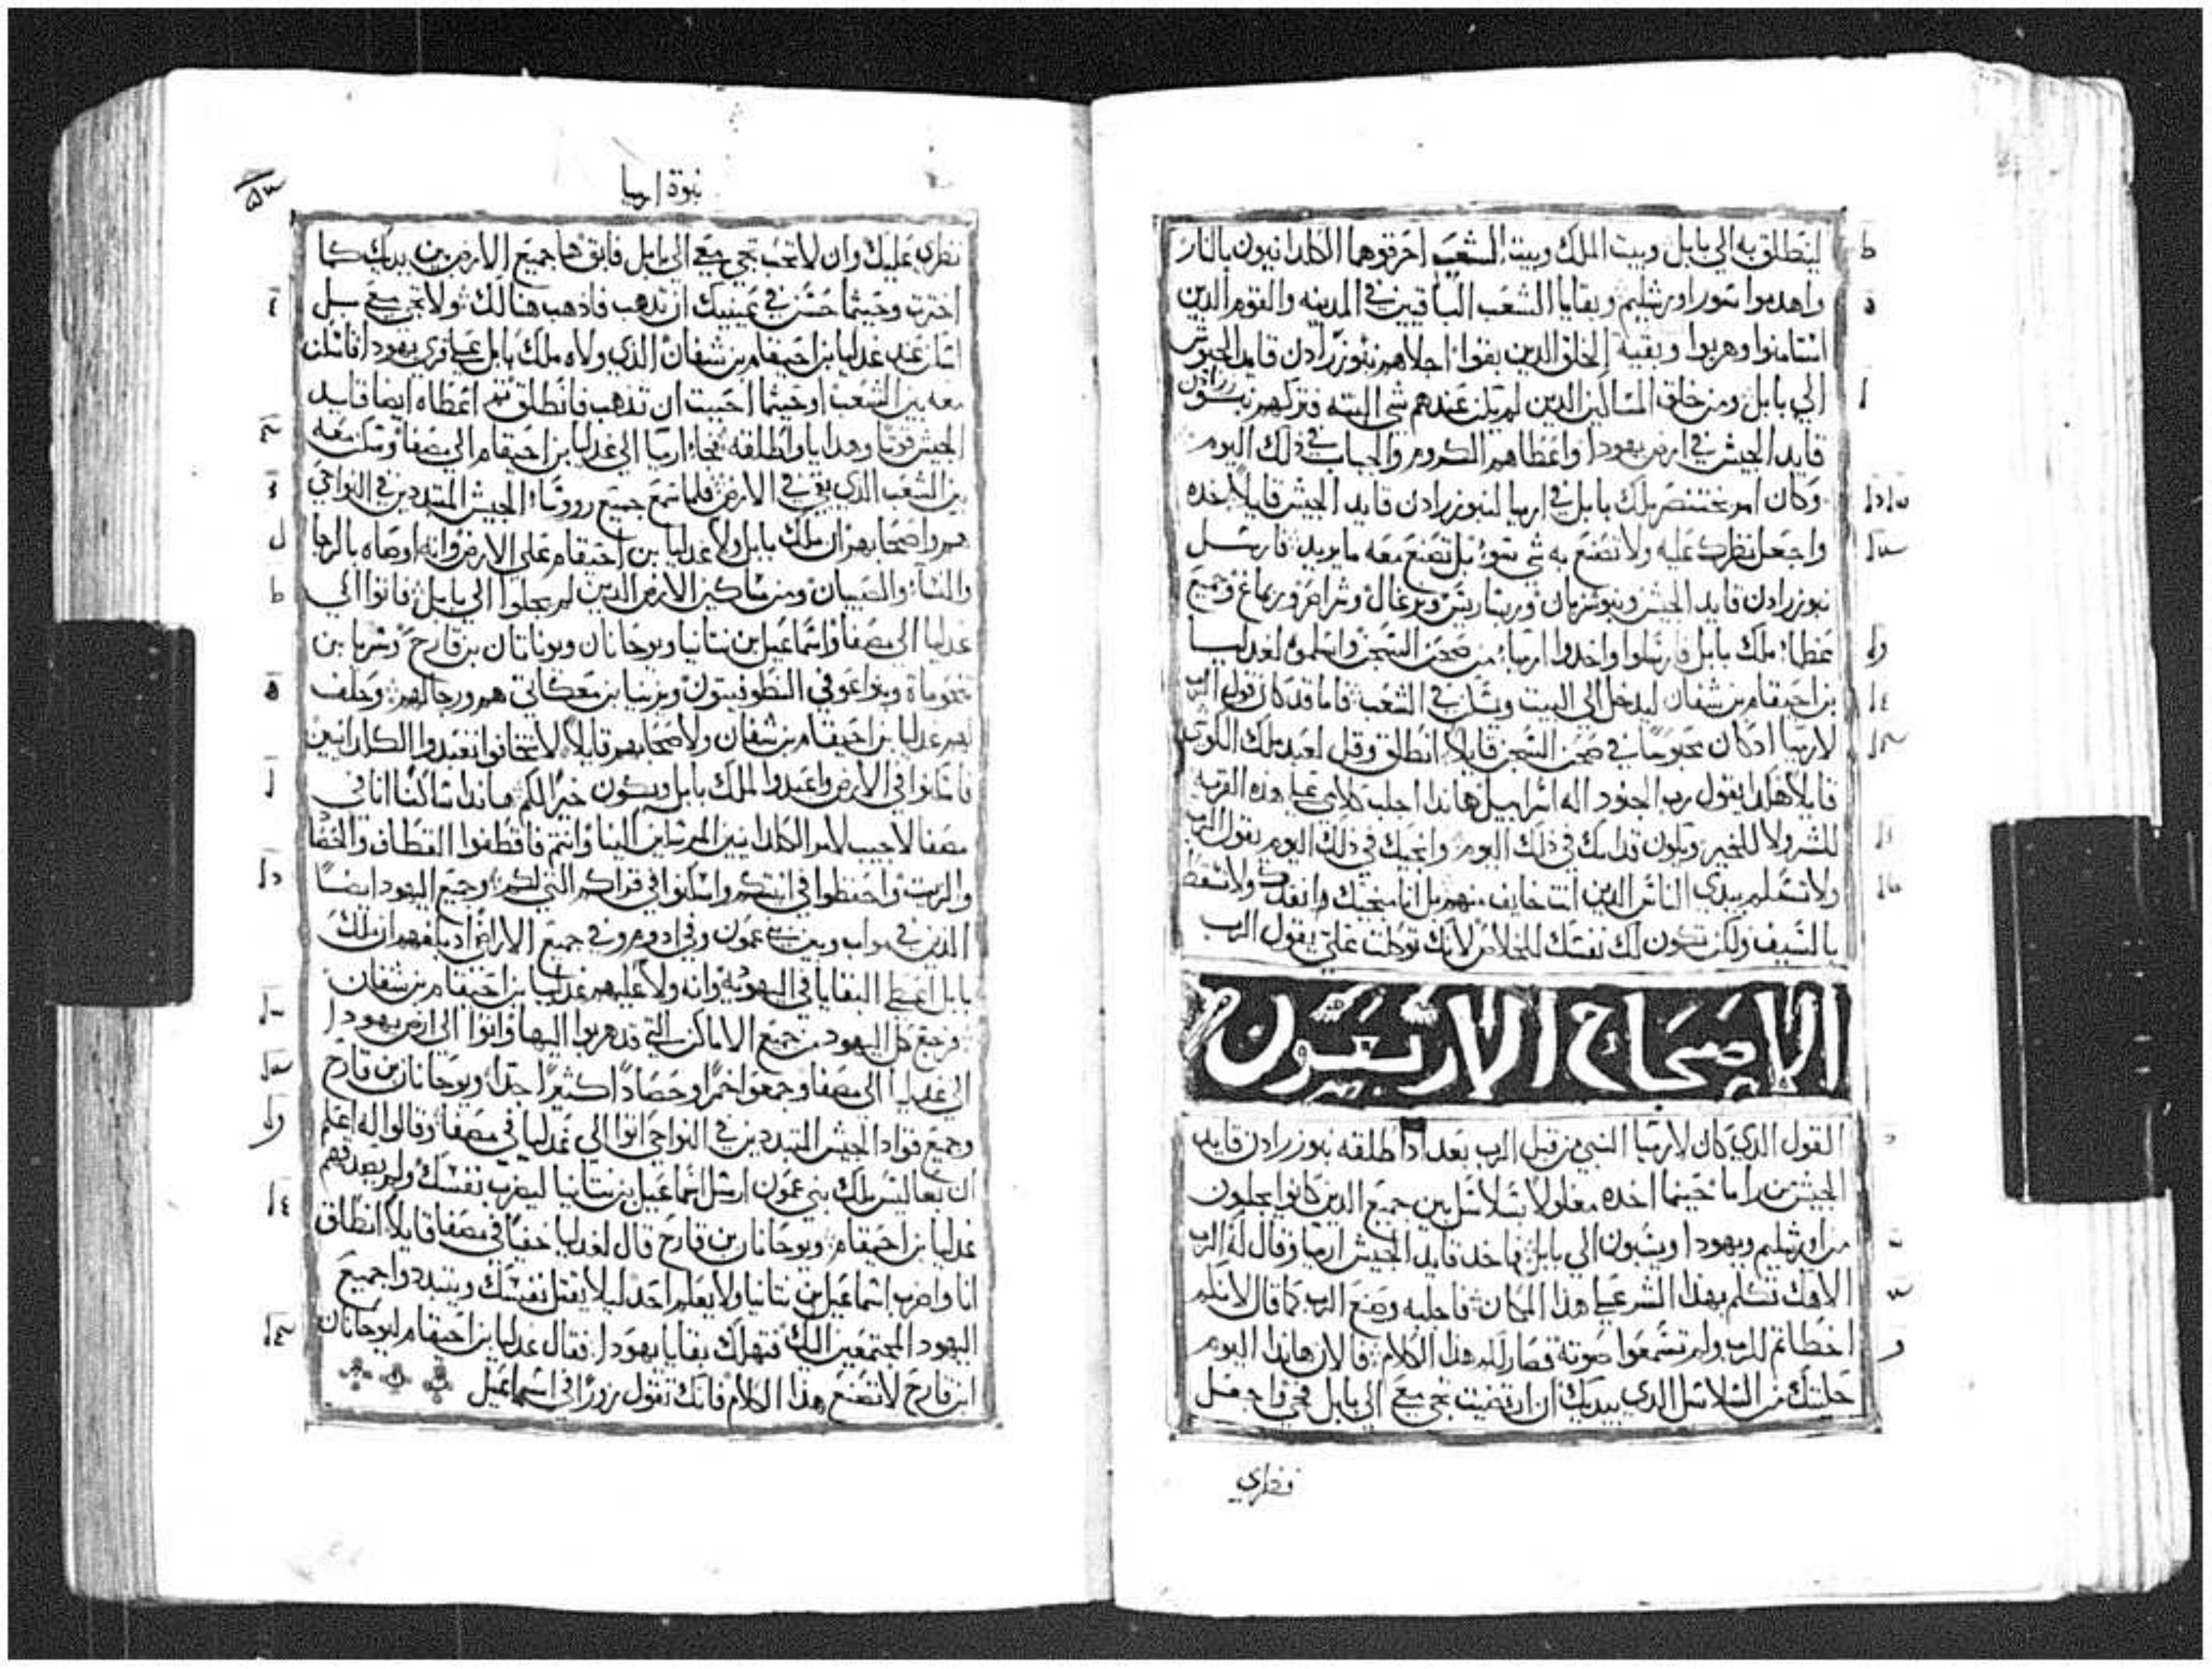 لينطلق به الي بابل وبيت الملك وبيت الشعب احرقوهما الكلدانيون بالنار
واهدموا سور اورشليم وبقايا الشعب الباقيين في المدينه والقوم الذين
استامنوا وهربوا وبقية الخلق الذين بقوا اجلاهم نبوزرادن قايد الجيوش
الي بابل ومن خلق المساكين الذين لم يكن عندهم شي البته فتركهم نبوزرادن
قايد الجيش في ارض يهودا واعطاهم الكروم والجباب في ذلك اليوم
وكان امر بختنصر ملك بابل في ارميا لنبوزرادن قايد الجيش قايلا خده
واجعل نظرك عليه ولا تصنع به شي سوء بل تصنع معه ما يريد فارسل
نبوزرادن قايد الجيش ونبوشزبان وجميع
عظماء ملك بابل فارسلوا واخدوا ارميا من صحن السجن واسلموه لغدليا
بن احيقام بن شفان ليدخل الي البيت ويسكن في الشعب فاما قد كان قول الرب
لارميا ادكان محبوسا في صحن السجن قايلا انطلق وقل لعبد ملك الكوشي
قايلا هكدا يقول رب الجنود اله اسراييل هاندا اجلب كلامي علي هذه القريه
للشر ولا للخير وتكون قدامك في ذلك اليوم وانجيك في ذلك اليوم يقول الرب
ولا تسلم بيدي الناس الدين انت خايف منهم بل انا منجيك وانقدك ولا تسقط
بالسيف ولكن تكون لك نفسك للخلاص لانك توكلت علي يقول الرب
الاصحاح الاربعون
القول الدي كان لارميا النبي من قبل الرب بعد اد اطلقه نبوزرادن قايد
الجيش من راما حينما اخده مغلولا بسلاسل بين جميع الدين كانوا يجلون
من اورشليم ويهودا ويسبون الي بابل فاخد قايد الجيش ارميا وقال له الرب
الاهك تكلم بهدا الشر علي هدا المكان فاجلبه وصنع الرب كما قال لانكم
اخطاتم للرب ولم تسمعوا صوته فصار لكم هدا الكلام فالان هاندا اليوم
حليتك من السلاسل الدي بيديك ان ارتضيت تجي معي الي بابل فجي واجعل
نظري
نبوة ارميا
نظري عليك وان لا تحب تجي معي الي بابل فابق هنا جميع الارض بين يديك كما
اخترت وحيثما حسن في عينيك ان تدهب فادهب هنالك ولا تجي معي بل
اسكن عند غدليا بن احيقام بن شفان الدي ولاه ملك بابل علي قري يهودا فاسكن
معه بين الشعب او حيثما احببت ان تدهب فانطلق ثم اعطاه ايضا قايد
الجيش قوتا وهدايا واطلقه فجاء ارميا الي غدليا بن احيقام الي مصفا وسكن معه
بين الشعب الدي بقي في الارض فلما سمع جميع رووساء الجيش المتبددين في النواحي
هم واصحابهم ان ملك بابل ولا غدليا بن احيقام علي الارض وانه اوصاه بالرجال
والنساء والصبيان ومن مساكين الارض الدين لم يجلوا الي بابل فاتوا الي
غدليا الي مصفا واسماعيل بن نتانيا ويوحانان ويوناتان بن قارح وسريا بن
معكاتي هم ورجالهم وحلف
لهم غدليا بن احيقام بن شفان ولاصحابهم قايلا لا تخافوا تعبدوا الكلدانيين
فاسكنوا في الارض واعبدوا الملك بابل ويكون خيرا لكم هاندا ساكنا انا في
مصفا لاجيب لامر الكلدانيين المرسلين الينا وانتم فاقطفوا القطاف والحصاد
والزيت واحفظوا في انيتكم واسكنوا في قراكم التي لكم وجميع اليهود ايضا
الدين في مواب وبين بني عمون وفي ادوم وفي جميع الاراضي اد بلغهم ان ملك
بابل اعطي البقايا في اليهوديه وانه ولا عليهم غدليا بن احيقام بن شفان
فرجع كل اليهود من جميع الاماكن التي قد هربوا اليها واتوا الي ارض يهودا
الي غدليا الي مصفا وجمعوا خمرا وحصادا كثيرا جدا ويوحانان بن قارح
وجميع قواد الجيش المتبددين في النواحي اتوا الي غدليا في مصفا وقالوا له اعلم
ان بعاليس ملك بني عمون ارسل اسماعيل بن نتانيا ليضرب نفسك ولم يصدقهم
غدليا بن احيقام ويوحانان بن قارح قال لغدليا خفيا في مصفا قايلا انطلق
انا واضرب اسماعيل بن نتانيا ولا يعلم احد ليلا يقتل نفسك ويتبددوا جميع
اليهود المجتمعين اليك فتهلك بقايا يهودا فقال غدليا بن احيقام ليوحانان
ابن قارح لا تصنع هدا الكلام فانك تقول زورا في اسماعيل